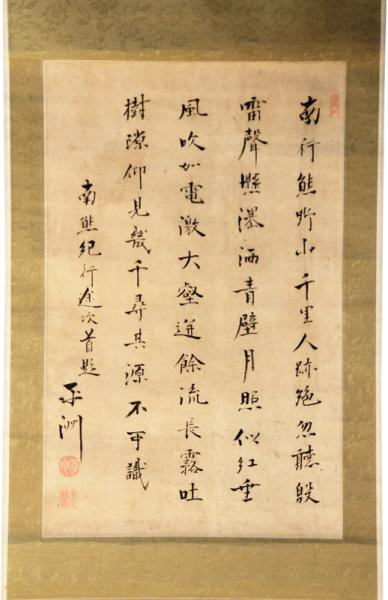 南行熊野山千里人跡絶忽聽殷
雷聲懸瀑洒青壁月照似虹垂
風吹如電激大壑迸餘流長霧吐
樹隙仰見幾千尋其源不可識
南熊紀行途次首題
平洲